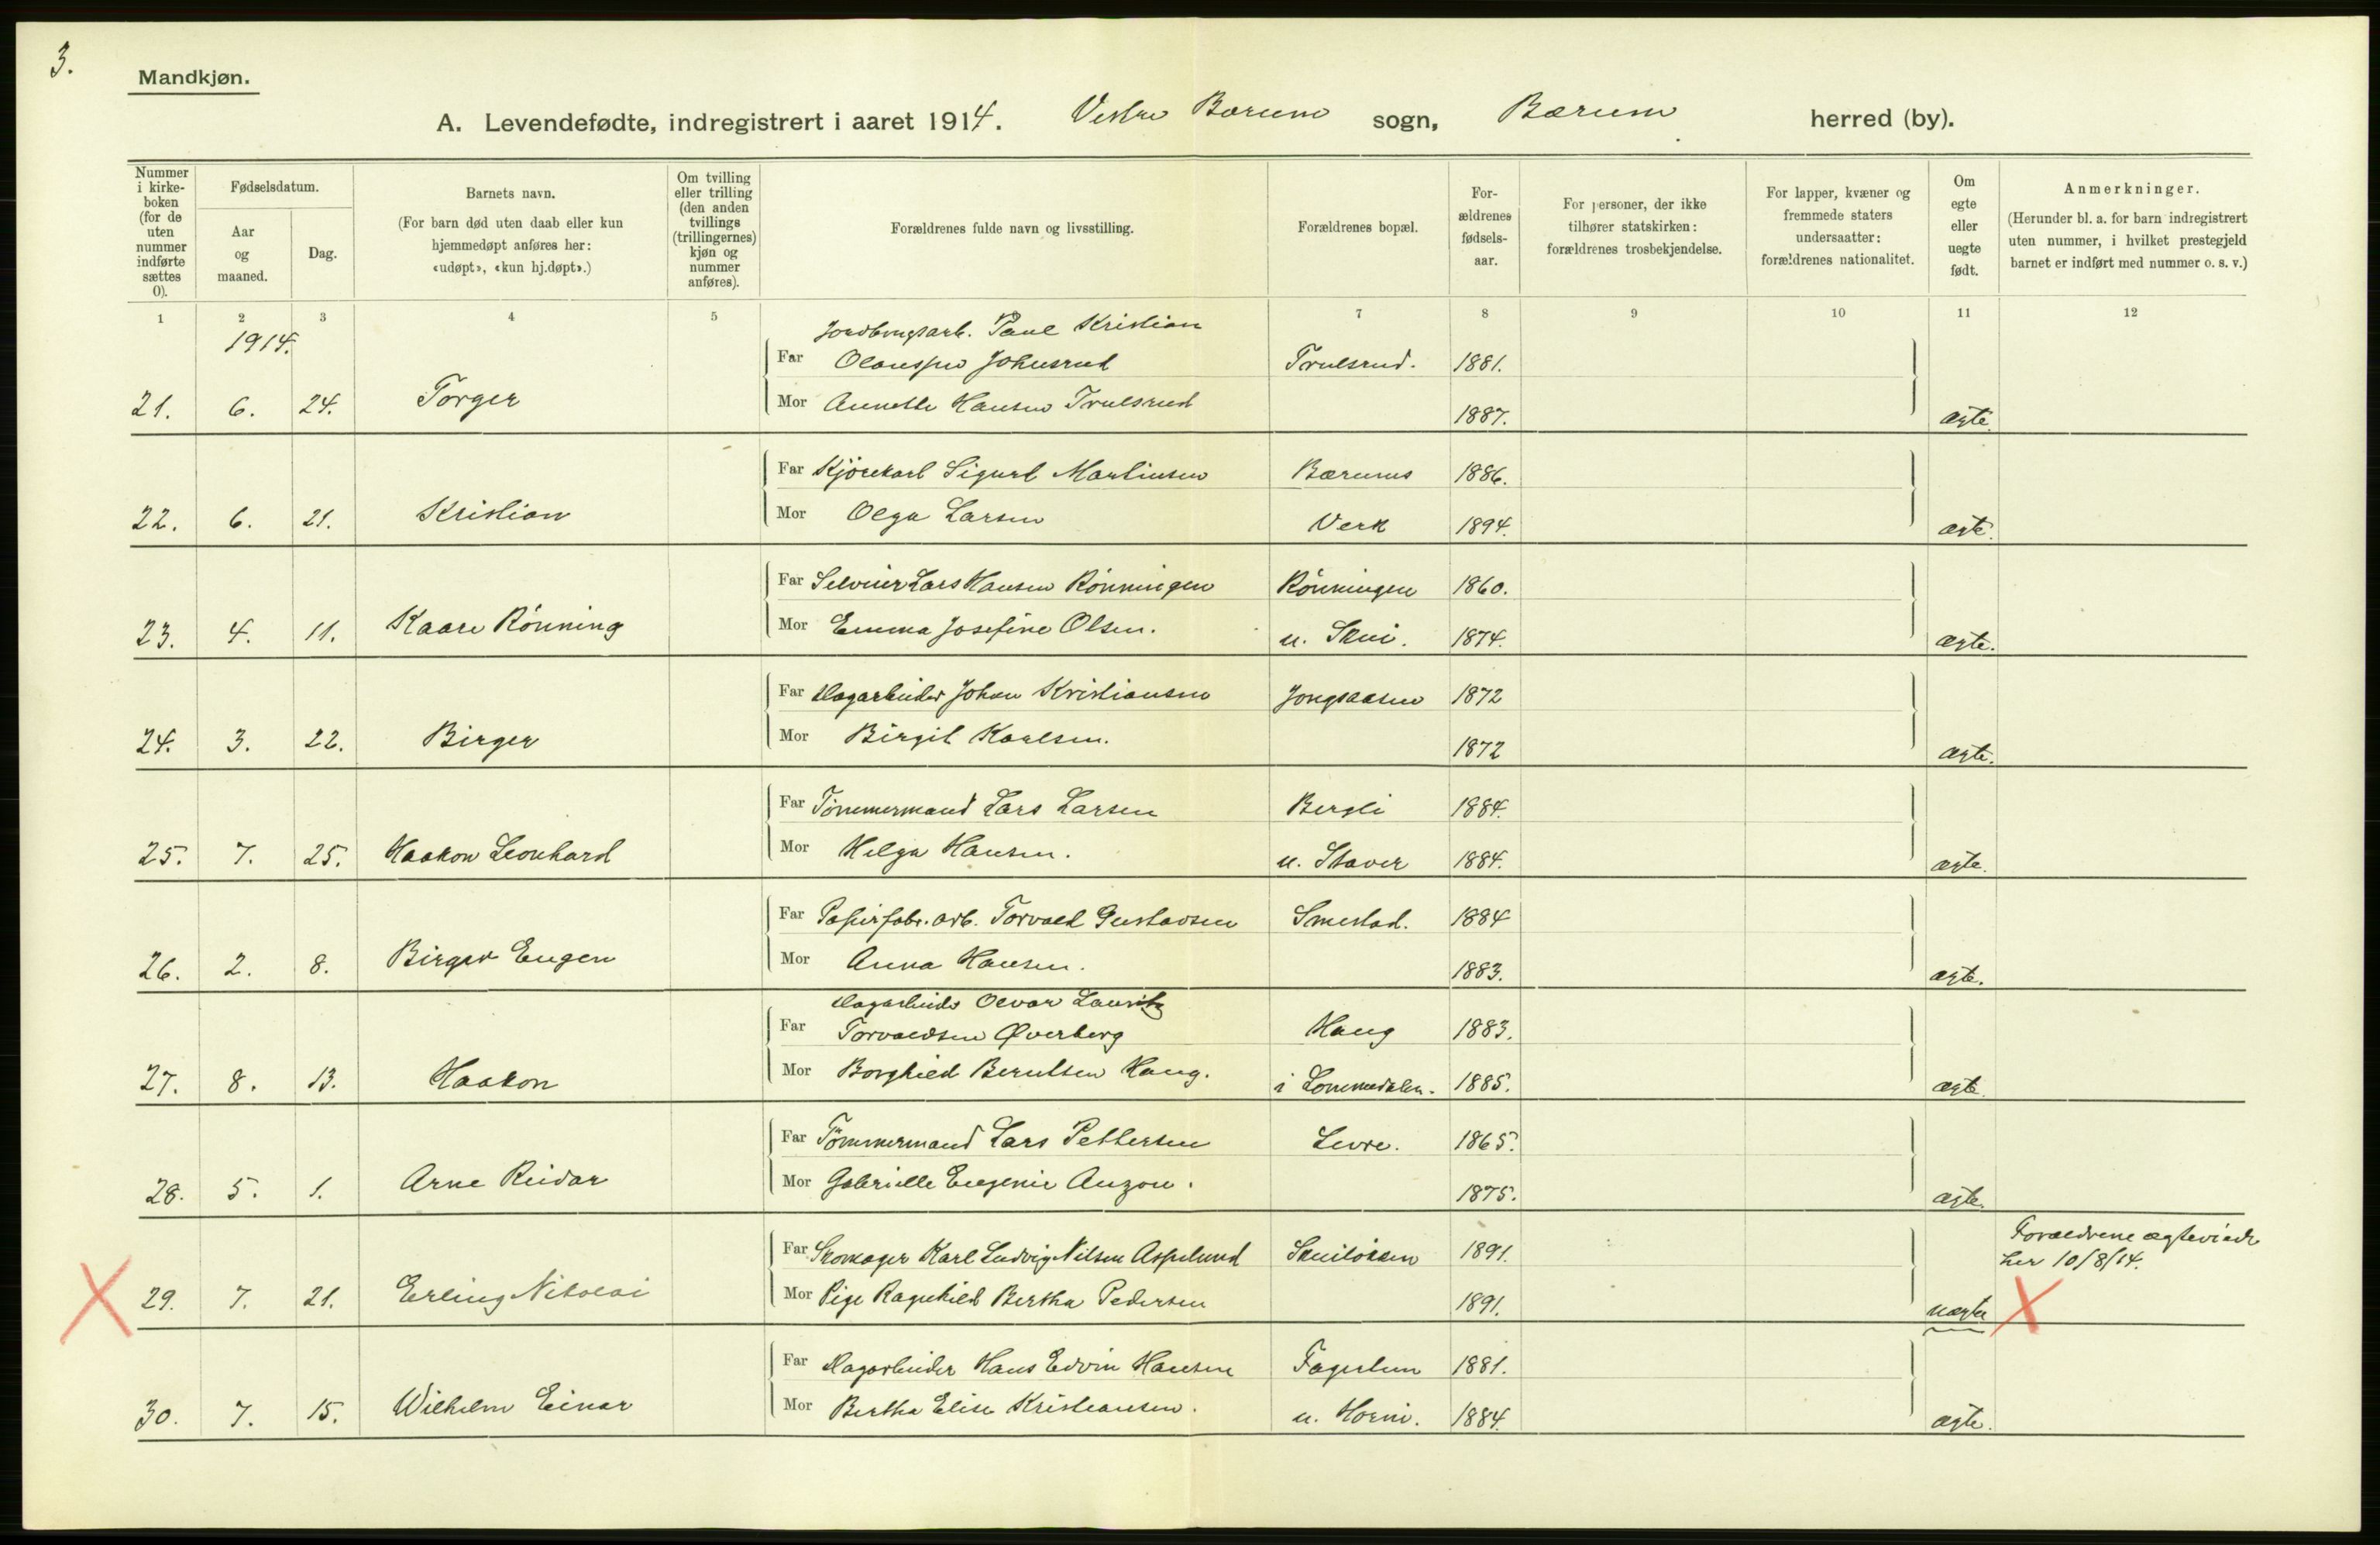 3.
Mandkjøn.
A. Levendefødte, indregistrert i aaret 1914. Vestre Bærum sogn, Bærum herred (by).
Nummer i kirke- boken (for de uten nummer indførte sættes 0).
Fødselsdatum.
Aar og maaned.
Dag.
Barnets navn.
(For barn død uten daab eller kun hjemmedøpt anføres her: «udøpt», «kun hj.døpt».)
Om tvilling eller trilling (den anden tvillings (trillingernes) kjøn og nummer anføres).
Forældrenes fulde navn og livsstilling.
Forældrenes bopæl.
For- ældrenes fødsels- aar.
For personer, der ikke tilhører statskirken: forældrenes trosbekjendelse.
For lapper, kvæner og fremmede staters undersaatter: forældrenes nationalitet.
Om egte eller uegte født.
Anmerkninger.
(Herunder bl. a. for barn indregistrert uten nummer, i hvilket prestegjeld barnet er indført med nummer o. s. v.)
1 2 3 4 5 7 8 9 10 11 12
1914.
Jordbrugsarb. Paul Kristian
Far Olaussen Johnsrud Trulsrud. 1881.
21. 6. 24. Torger Mor Annette Hansen Trulsrud 1887. ægte.
Far Kjørekarl Sigurd Martinsen Bærums 1886.
22. 6. 21. Kristian Mor Olga Larsen Verk 1894. ægte.
Far Selveier Lars Hansen Rønningen Rønningen 1860.
23. 4. 11. Kaare Rønning Mor Emma Josefine Olsen. u. Skui. 1874. ægte.
Far Dagarbeider Johan Kristiansen Jongsaasen 1872
24. 3. 22. Birger Mor Birgit Karlsen. 1872 ægte.
Far Tømmermand Lars Larsen Bergli 1884.
25. 7. 25. Haakon Leonhard Mor Helga Hansen. u. Staver 1884. ægte.
Far Papirfabr. arb. Torvald Gustavsen Smestad. 1884
26. 2. 8. Birger Eugen Mor Anna Hansen. 1883. ægte.
Dagarbeider Olvar Lauritz
Far Torvaldsen Øverberg Haug 1883.
27. 8. 13. Haakon Mor Borghild Berntsen Haug. i Lommedalen. 1885. ægte.
Far Tömmermand Lars Pettersen Levre. 1865.
28. 5. 1. Arne Reidar Mor Gabrielle Eugenie Auzou. 1875. ægte.
Far Skomager Karl Ludvig Nilsen Aspelund Skuiløkken 1891. Forældrene ægteviede
her 10/8/14.
29. 7. 21. Erling Nikolai Mor Pige Ragnhild Bertha Pedersen 1891. uægte
Far Dagarbeider Hans Edvin Hansen Fagerlun 1881.
30. 7. 15. Wilhelm Einar Mor Bertha Elise Kristiansen. u. Horni. 1884. ægte.